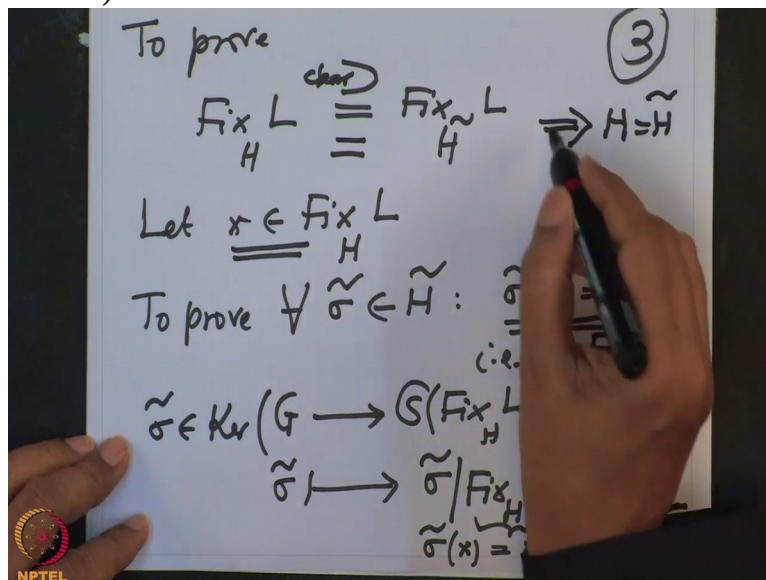 To prove
3
clear)
Fix_H L = Fix_H̃ L ⟹ H = H̃
Let x ∈ Fix_H L
To prove ∀ σ̃ ∈ H̃ : σ̃ =
(i.e.
σ̃ ∈ Ker (G ⟶ G(Fix_H L
σ̃ ⟼ σ̃|Fix_H
σ̃(x) =
NPTEL